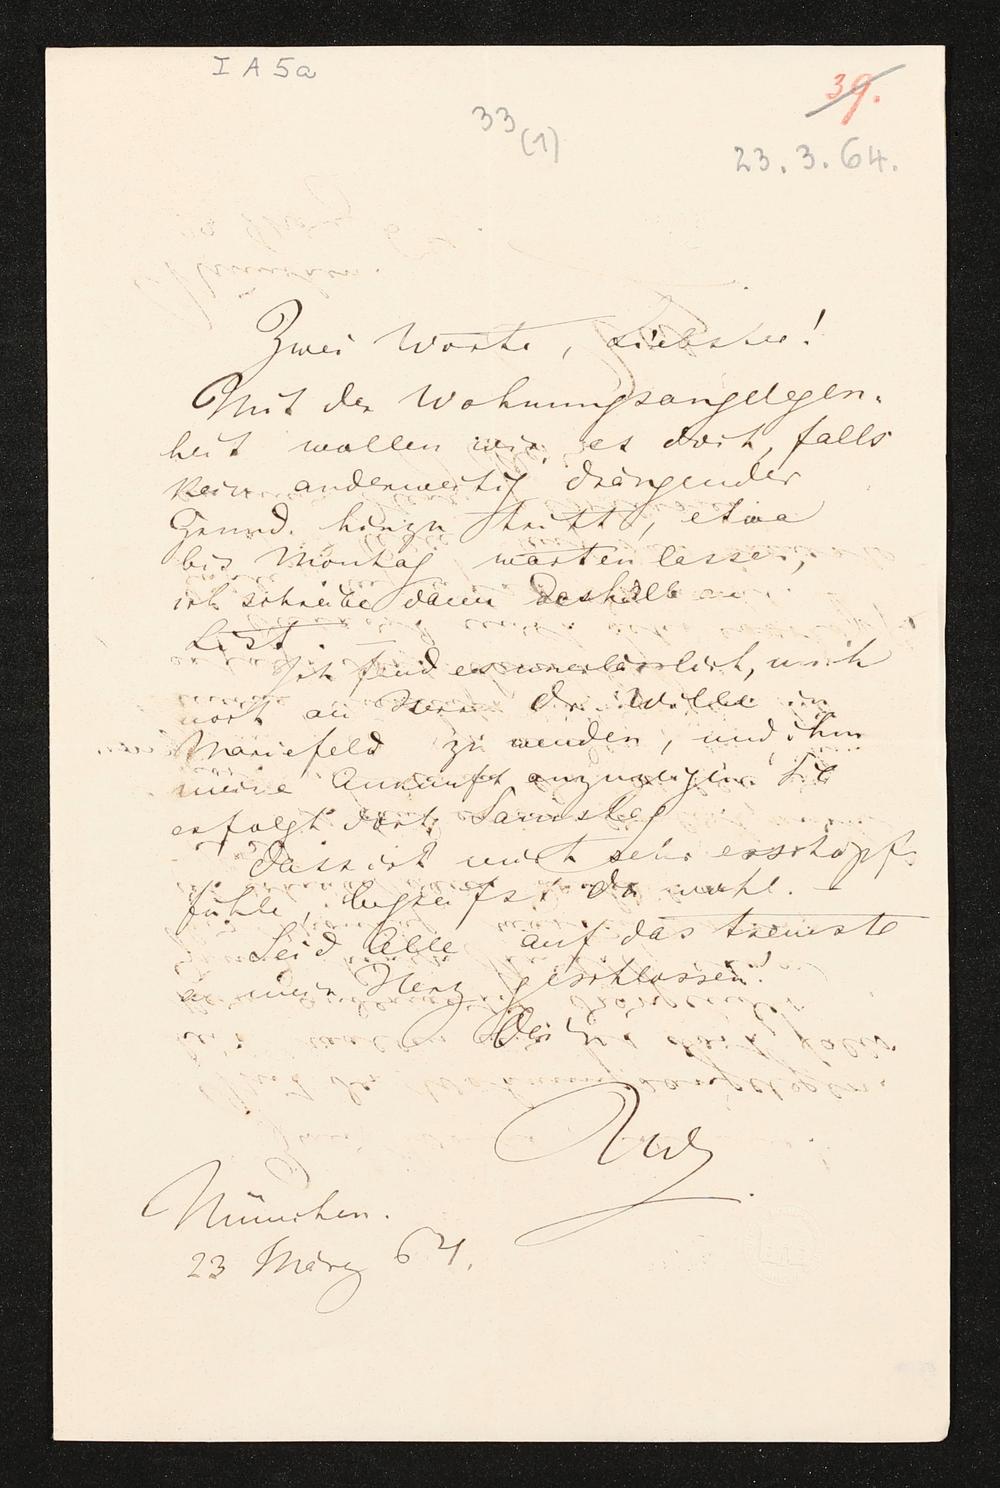 I A 5a
39.
33 (1)
23. 3. 64.
Zwei Worte, Liebster!
Mit der Wohnungsangelegen-
heit wollen wir es dort, falls
kein anderweitig drängender
Grund hinzu tritt, etwa
bis Montag warten lassen;
ich schreibe dann deshalb an
Ich fand es unerlässlich, mich
noch an Herrn Dr. Wille in
Mariefeld zu wenden, und ihm
meine Ankunft anzuzeigen. Sie
erfolgt dort Samstag
Dass ich mich sehr erschöpft
fühle, begreifst du wohl. –
Seid Alle auf das treueste
an mein Herz geschlossen!
Dein
München.
23 März 64.